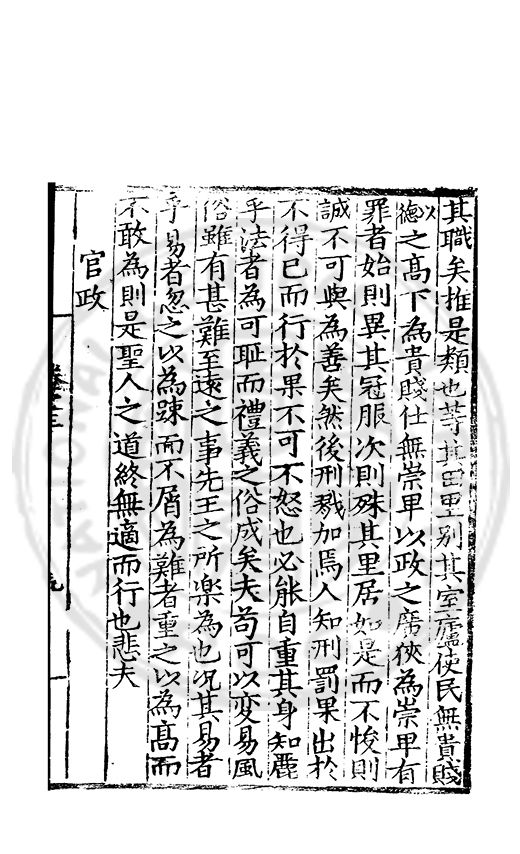 其職矣推是類也等其田里别其室廬使民無貴賤
以德之髙下為貴賤仕無崇卑以政之廣狹為崇卑有
罪者始則異其冠服次則殊其里居如是而不悛則
誠不可與為善矣然後刑戮加焉人知刑罰果出於
不得已而行於果不可不怒也必能自重其身知麗
乎法者為可耻而禮義之俗成矣夫苟可以变易風
俗雖有甚難至逺之事先王之所楽為也况其易者
乎易者忽之以為踈而不屑為難者重之以為髙而
不敢為則是聖人之道終無適而行也悲夫
官政